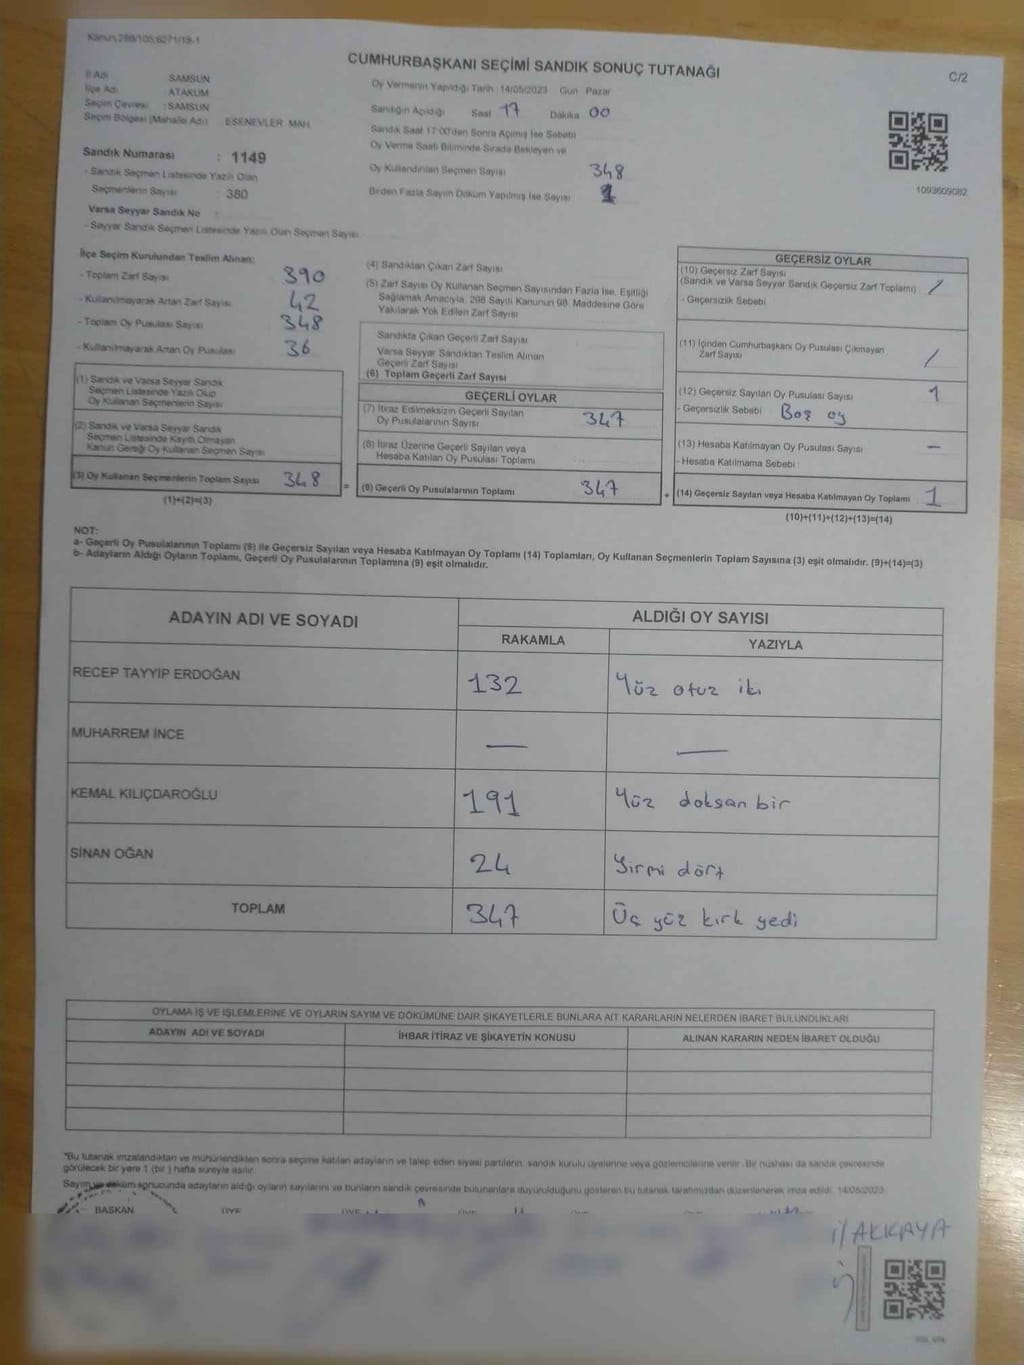 Kanun:298/105,6271/19-1
CUMHURBAŞKANI SEÇİMİ SANDIK SONUÇ TUTANAĞI
C/2
İl Adı SAMSUN
İlçe Adı ATAKUM
Seçim Çevresi : SAMSUN
Seçim Bölgesi (Mahalle Adı) ESENEVLER MAH.
Oy Vermenin Yapıldığı Tarih :14/05/2023 Gün Pazar
Sandığın Açıldığı Saat 17 Dakika 00
Sandık Saat 17:00'den Sonra Açılmış İse Sebebi
Oy Verme Saati Bitiminde Sırada Bekleyen ve
Oy Kullandırılan Seçmen Sayısı 348
Birden Fazla Sayım Döküm Yapılmış İse Sayısı 1
1093609082
Sandık Numarası : 1149
- Sandık Seçmen Listesinde Yazılı Olan
Seçmenlerin Sayısı : 380
Varsa Seyyar Sandık No :
- Seyyar Sandık Seçmen Listesinde Yazılı Olan Seçmen Sayısı
İlçe Seçim Kurulundan Teslim Alınan:
- Toplam Zarf Sayısı 390
- Kullanılmayarak Artan Zarf Sayısı 42
- Toplam Oy Pusulası Sayısı 348
- Kullanılmayarak Artan Oy Pusulası 36
(1) Sandık ve Varsa Seyyar Sandık
Seçmen Listesinde Yazılı Olup
Oy Kullanan Seçmenlerin Sayısı
(2) Sandık ve Varsa Seyyar Sandık
Seçmen Listesinde Kayıtlı Olmayan
Kanun Gereği Oy Kullanan Seçmen Sayısı
(3) Oy Kullanan Seçmenlerin Toplam Sayısı 348 =
(1)+(2)=(3)
(4) Sandıktan Çıkan Zarf Sayısı
(5) Zarf Sayısı Oy Kullanan Seçmen Sayısından Fazla İse, Eşitliği
Sağlamak Amacıyla, 298 Sayılı Kanunun 98. Maddesine Göre
Yakılarak Yok Edilen Zarf Sayısı
Sandıkta Çıkan Geçerli Zarf Sayısı
Varsa Seyyar Sandıktan Teslim Alınan
Geçerli Zarf Sayısı
(6) Toplam Geçerli Zarf Sayısı
GEÇERLİ OYLAR
(7) İtiraz Edilmeksizin Geçerli Sayılan
Oy Pusulalarının Sayısı 347
(8) İtiraz Üzerine Geçerli Sayılan veya
Hesaba Katılan Oy Pusulası Toplamı
(9) Geçerli Oy Pusulalarının Toplamı 347 +
GEÇERSİZ OYLAR
(10) Geçersiz Zarf Sayısı
(Sandık ve Varsa Seyyar Sandık Geçersiz Zarf Toplamı) /
- Geçersizlik Sebebi
(11) İçinden Cumhurbaşkanı Oy Pusulası Çıkmayan
Zarf Sayısı /
(12) Geçersiz Sayılan Oy Pusulası Sayısı 1
- Geçersizlik Sebebi Boş oy
(13) Hesaba Katılmayan Oy Pusulası Sayısı —
- Hesaba Katılmama Sebebi :
(14) Geçersiz Sayılan veya Hesaba Katılmayan Oy Toplamı 1
(10)+(11)+(12)+(13)=(14)
NOT:
a- Geçerli Oy Pusulalarının Toplamı (9) ile Geçersiz Sayılan veya Hesaba Katılmayan Oy Toplamı (14) Toplamları, Oy Kullanan Seçmenlerin Toplam Sayısına (3) eşit olmalıdır. (9)+(14)=(3)
b- Adayların Aldığı Oyların Toplamı, Geçerli Oy Pusulalarının Toplamına (9) eşit olmalıdır.
ADAYIN ADI VE SOYADI ALDIĞI OY SAYISI
RAKAMLA YAZIYLA
RECEP TAYYİP ERDOĞAN 132 Yüz otuz iki
MUHARREM İNCE — —
KEMAL KILIÇDAROĞLU 191 Yüz doksan bir
SİNAN OĞAN 24 Yirmi dört
TOPLAM 347 Üç yüz kırk yedi
OYLAMA İŞ VE İŞLEMLERİNE VE OYLARIN SAYIM VE DÖKÜMÜNE DAİR ŞİKAYETLERLE BUNLARA AİT KARARLARIN NELERDEN İBARET BULUNDUKLARI
ADAYIN ADI VE SOYADI İHBAR İTİRAZ VE ŞİKAYETİN KONUSU ALINAN KARARIN NEDEN İBARET OLDUĞU
*Bu tutanak imzalandıktan ve mühürlendikten sonra seçime katılan adayların ve talep eden siyasi partilerin sandık kurulu üyelerine veya gözlemcilerine verilir. Bir nüshası da sandık çevresinde
görülecek bir yere 1 (bir ) hafta süreyle asılır.
Sayım ve döküm sonucunda adayların aldığı oyların sayılarını ve bunların sandık çevresinde bulunanlara duyurulduğunu gösteren bu tutanak tarafımızdan düzenlenerek imza edildi. 14/05/2023
BAŞKAN ÜYE ÜYE
AKKAYA